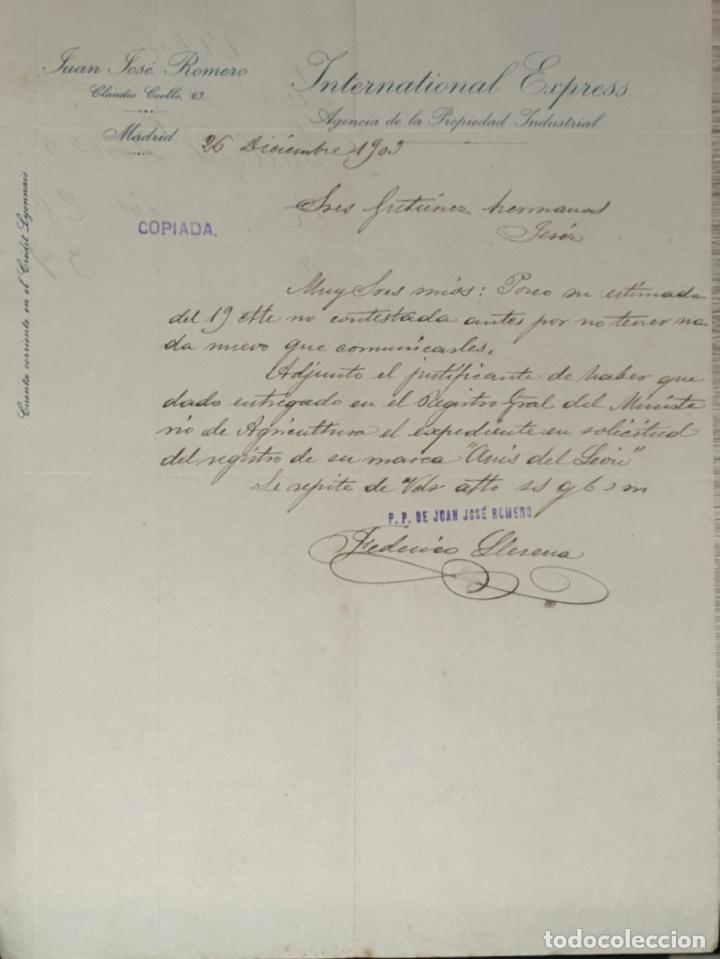 Juan José Romero
Claudio Coello, 23.
Madrid
International Express
Agencia de la Propiedad Industrial
26 Diciembre 1903
Cuenta corriente en el Crédit Lyonnais
Sres Gutiérrez hermanos
Jeréz
COPIADA.
Muy Sres mios: Poseo su estimada
del 19 cte no contestada antes por no tener na
da nuevo que comunicarles.
Adjunto el justificante de haber que
dado entregado en el Registro Gral del Ministe
rio de Agricultura el expediente en solicitud
del registro de su marca "Anis del León"
Se repite de Vds atto s s q b s m
P. P. DE JUAN JOSÉ ROMERO
Federico Llerena
todocoleccion
todocoleccion.net